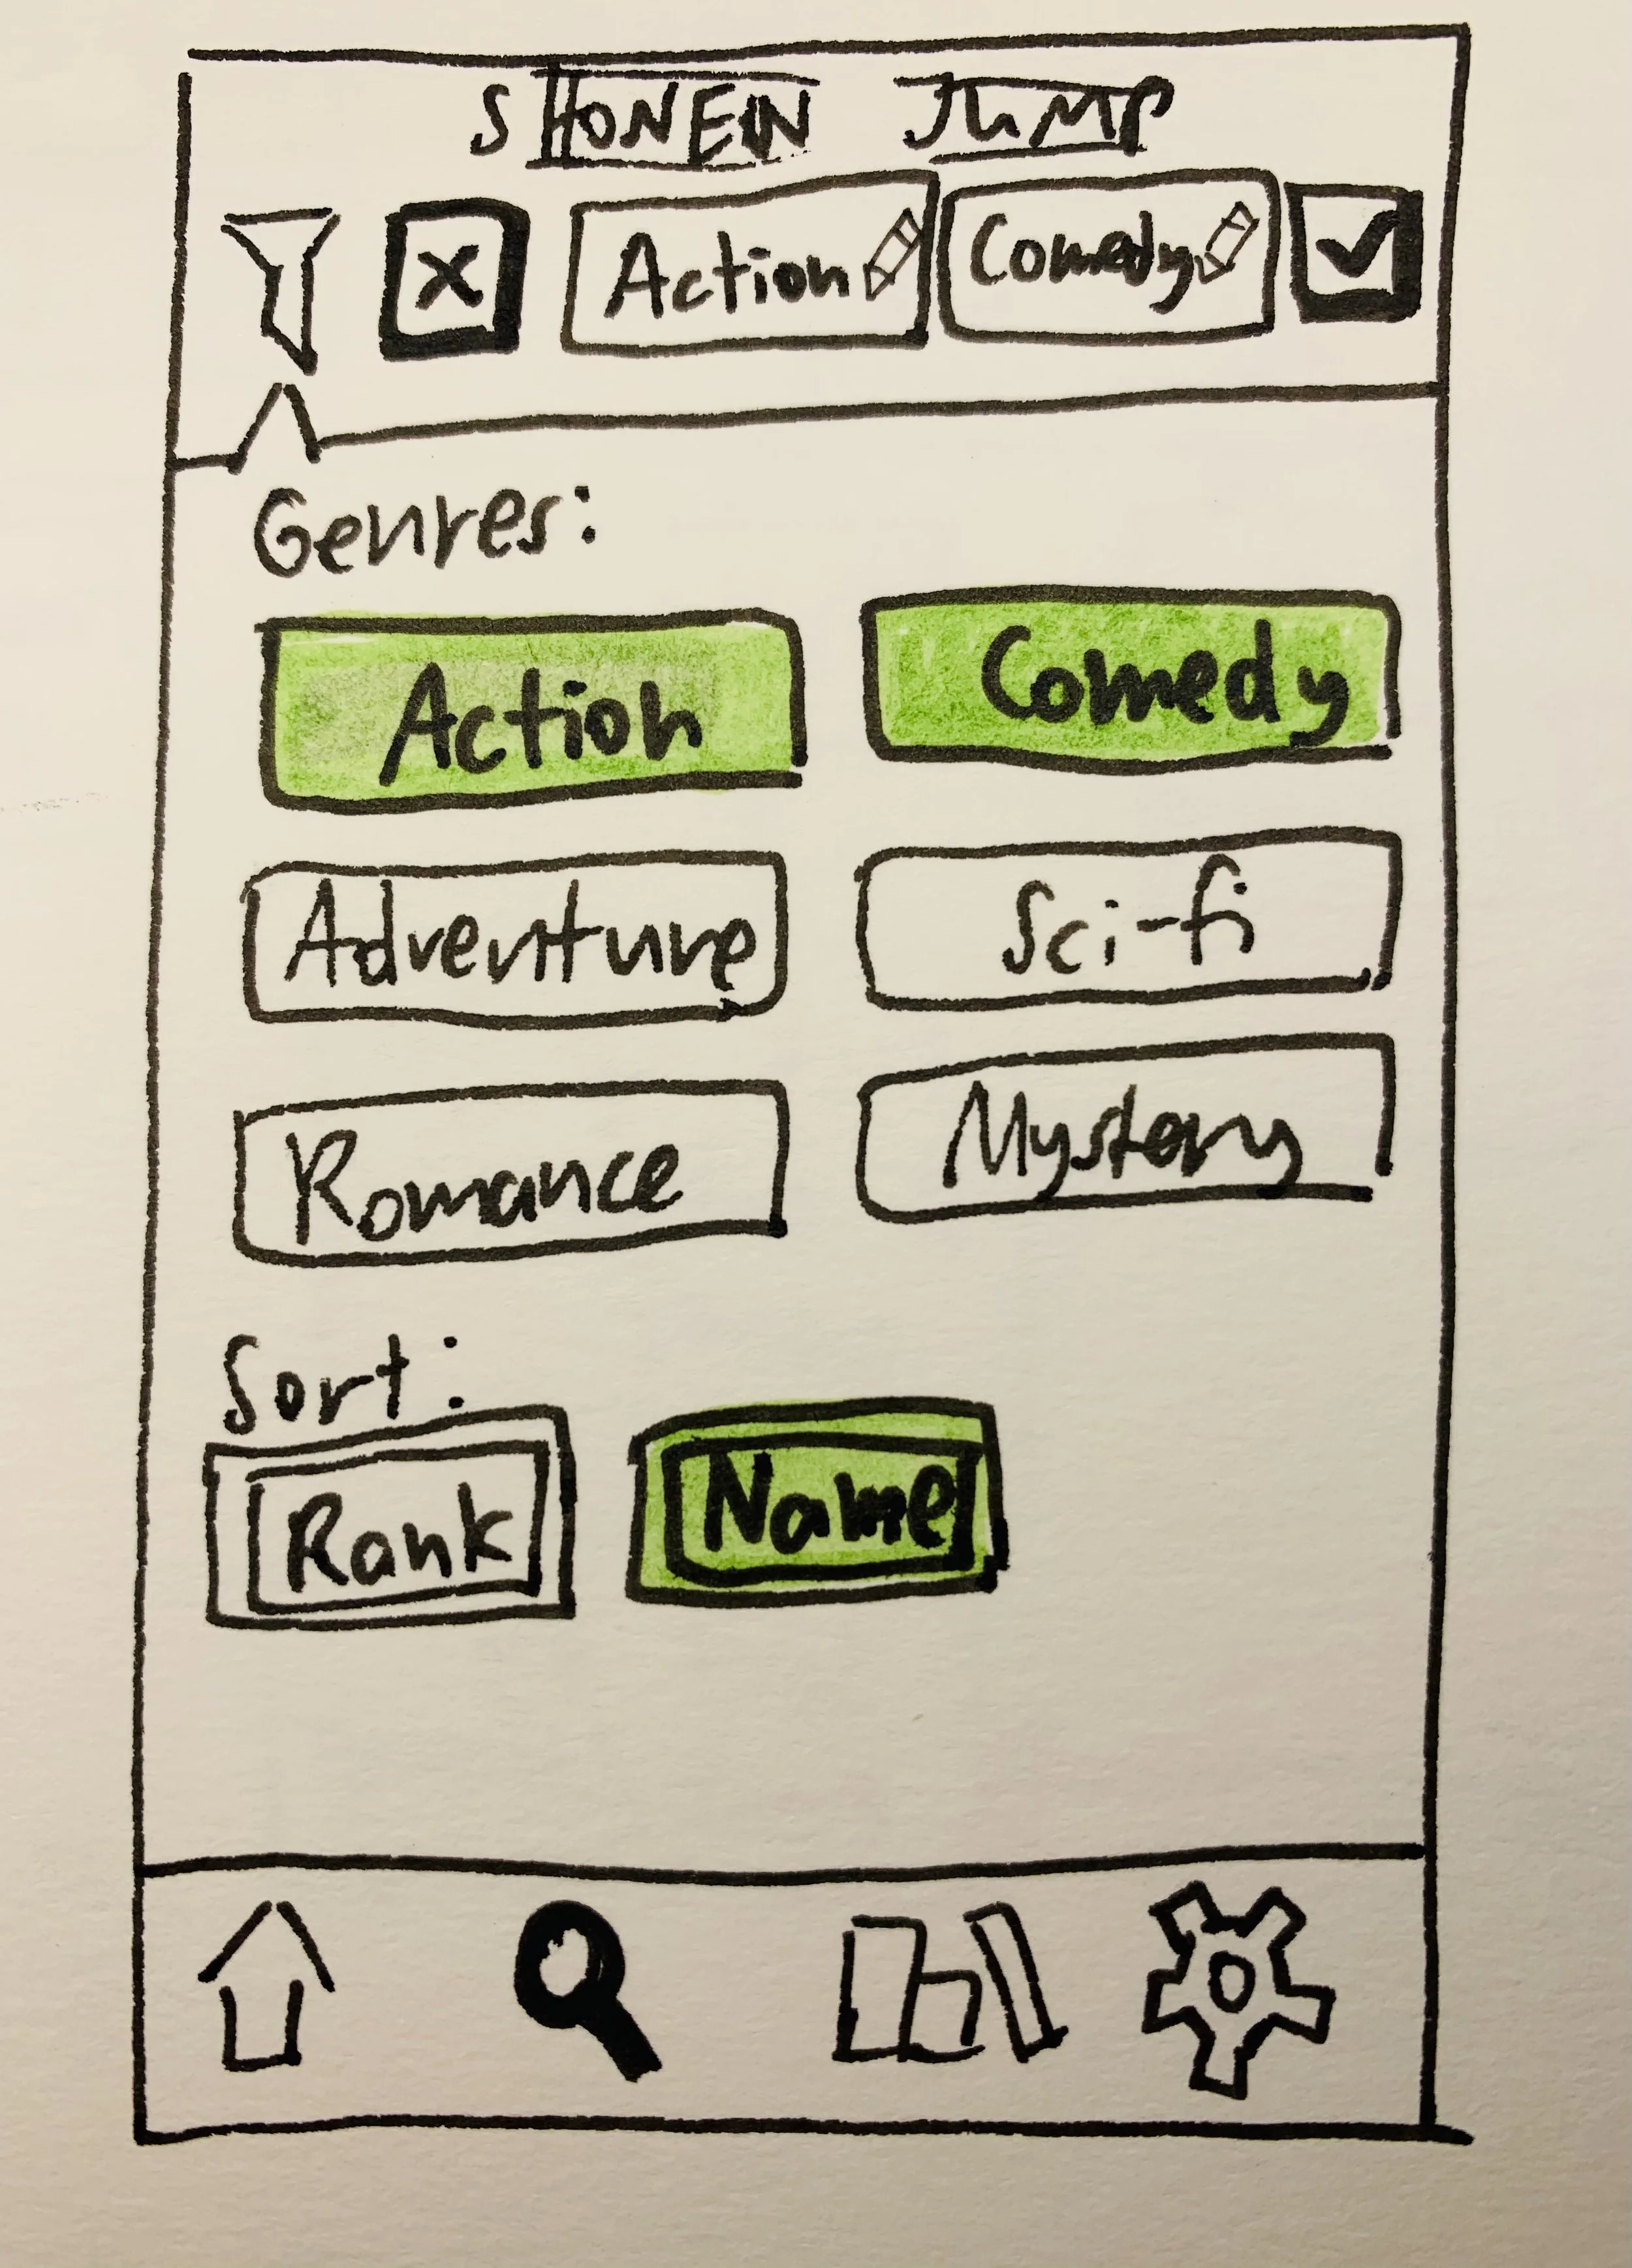 SHONEN JUMP
X Action Comedy
Genres:
Action Comedy
Adventure Sci-fi
Romance Mystery
Sort:
Rank Name